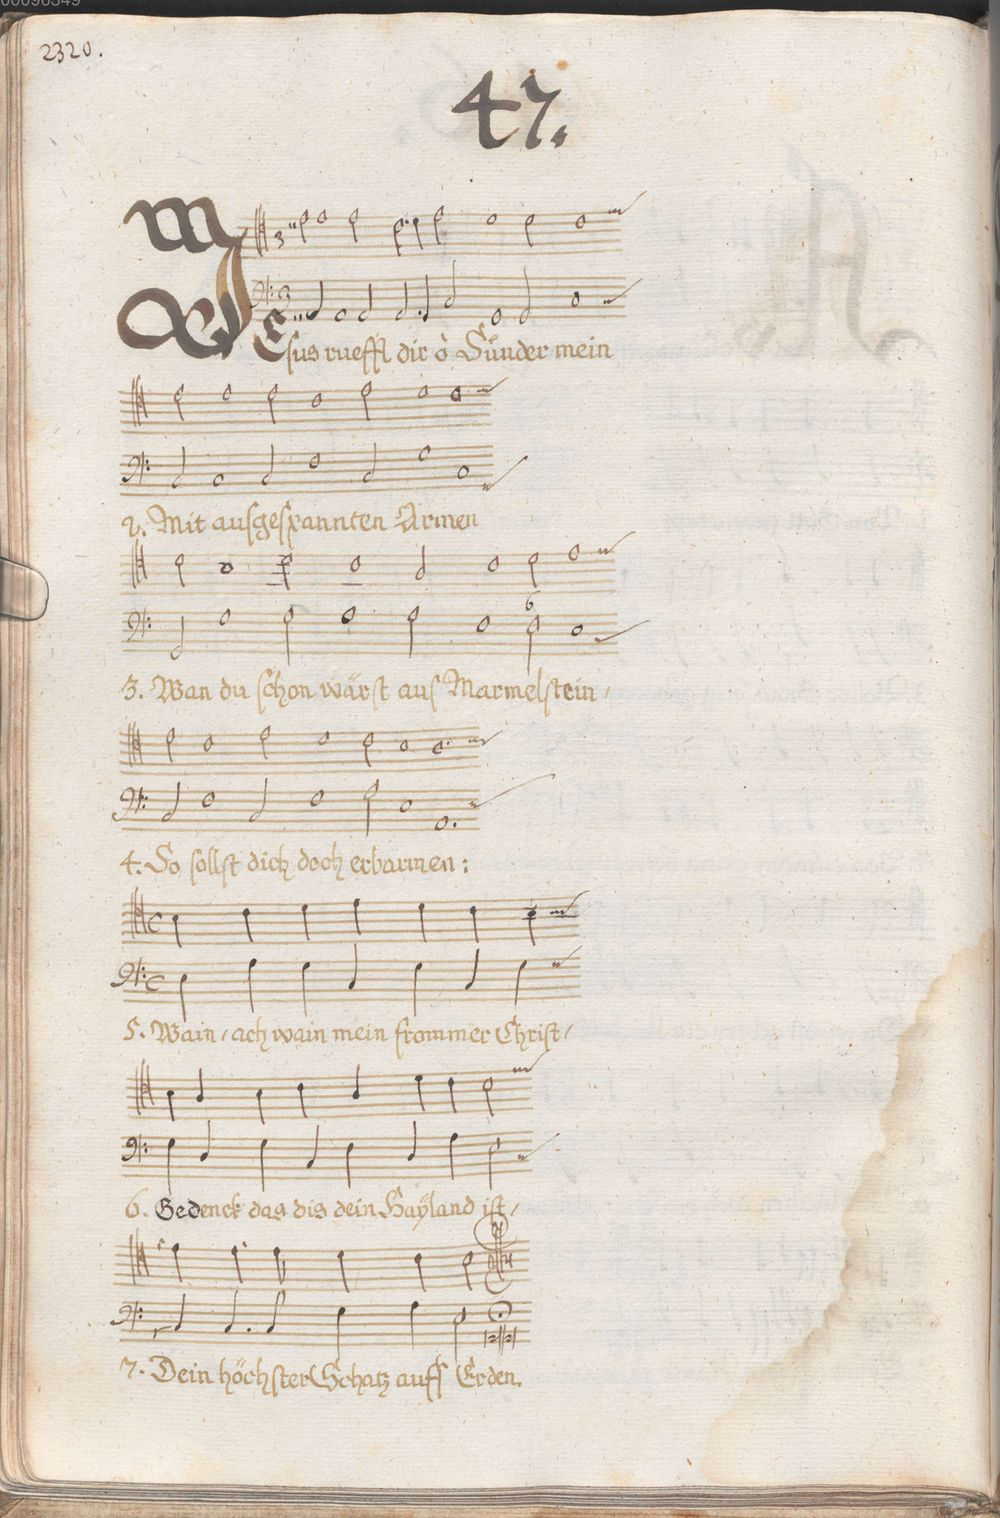 00096349
2320.
47.
JEsus ruefft dir ô Sünder mein
2. Mit ausgespannten Armen
3. Wan du schon wärst aus Marmelstein,
4. So sollst dich doch erbarmen:
5. Wain, ach wain mein frommer Christ,
6. Gedenck das dis dein Haÿland ist,
7. Dein höchster Schatz auff Erden.